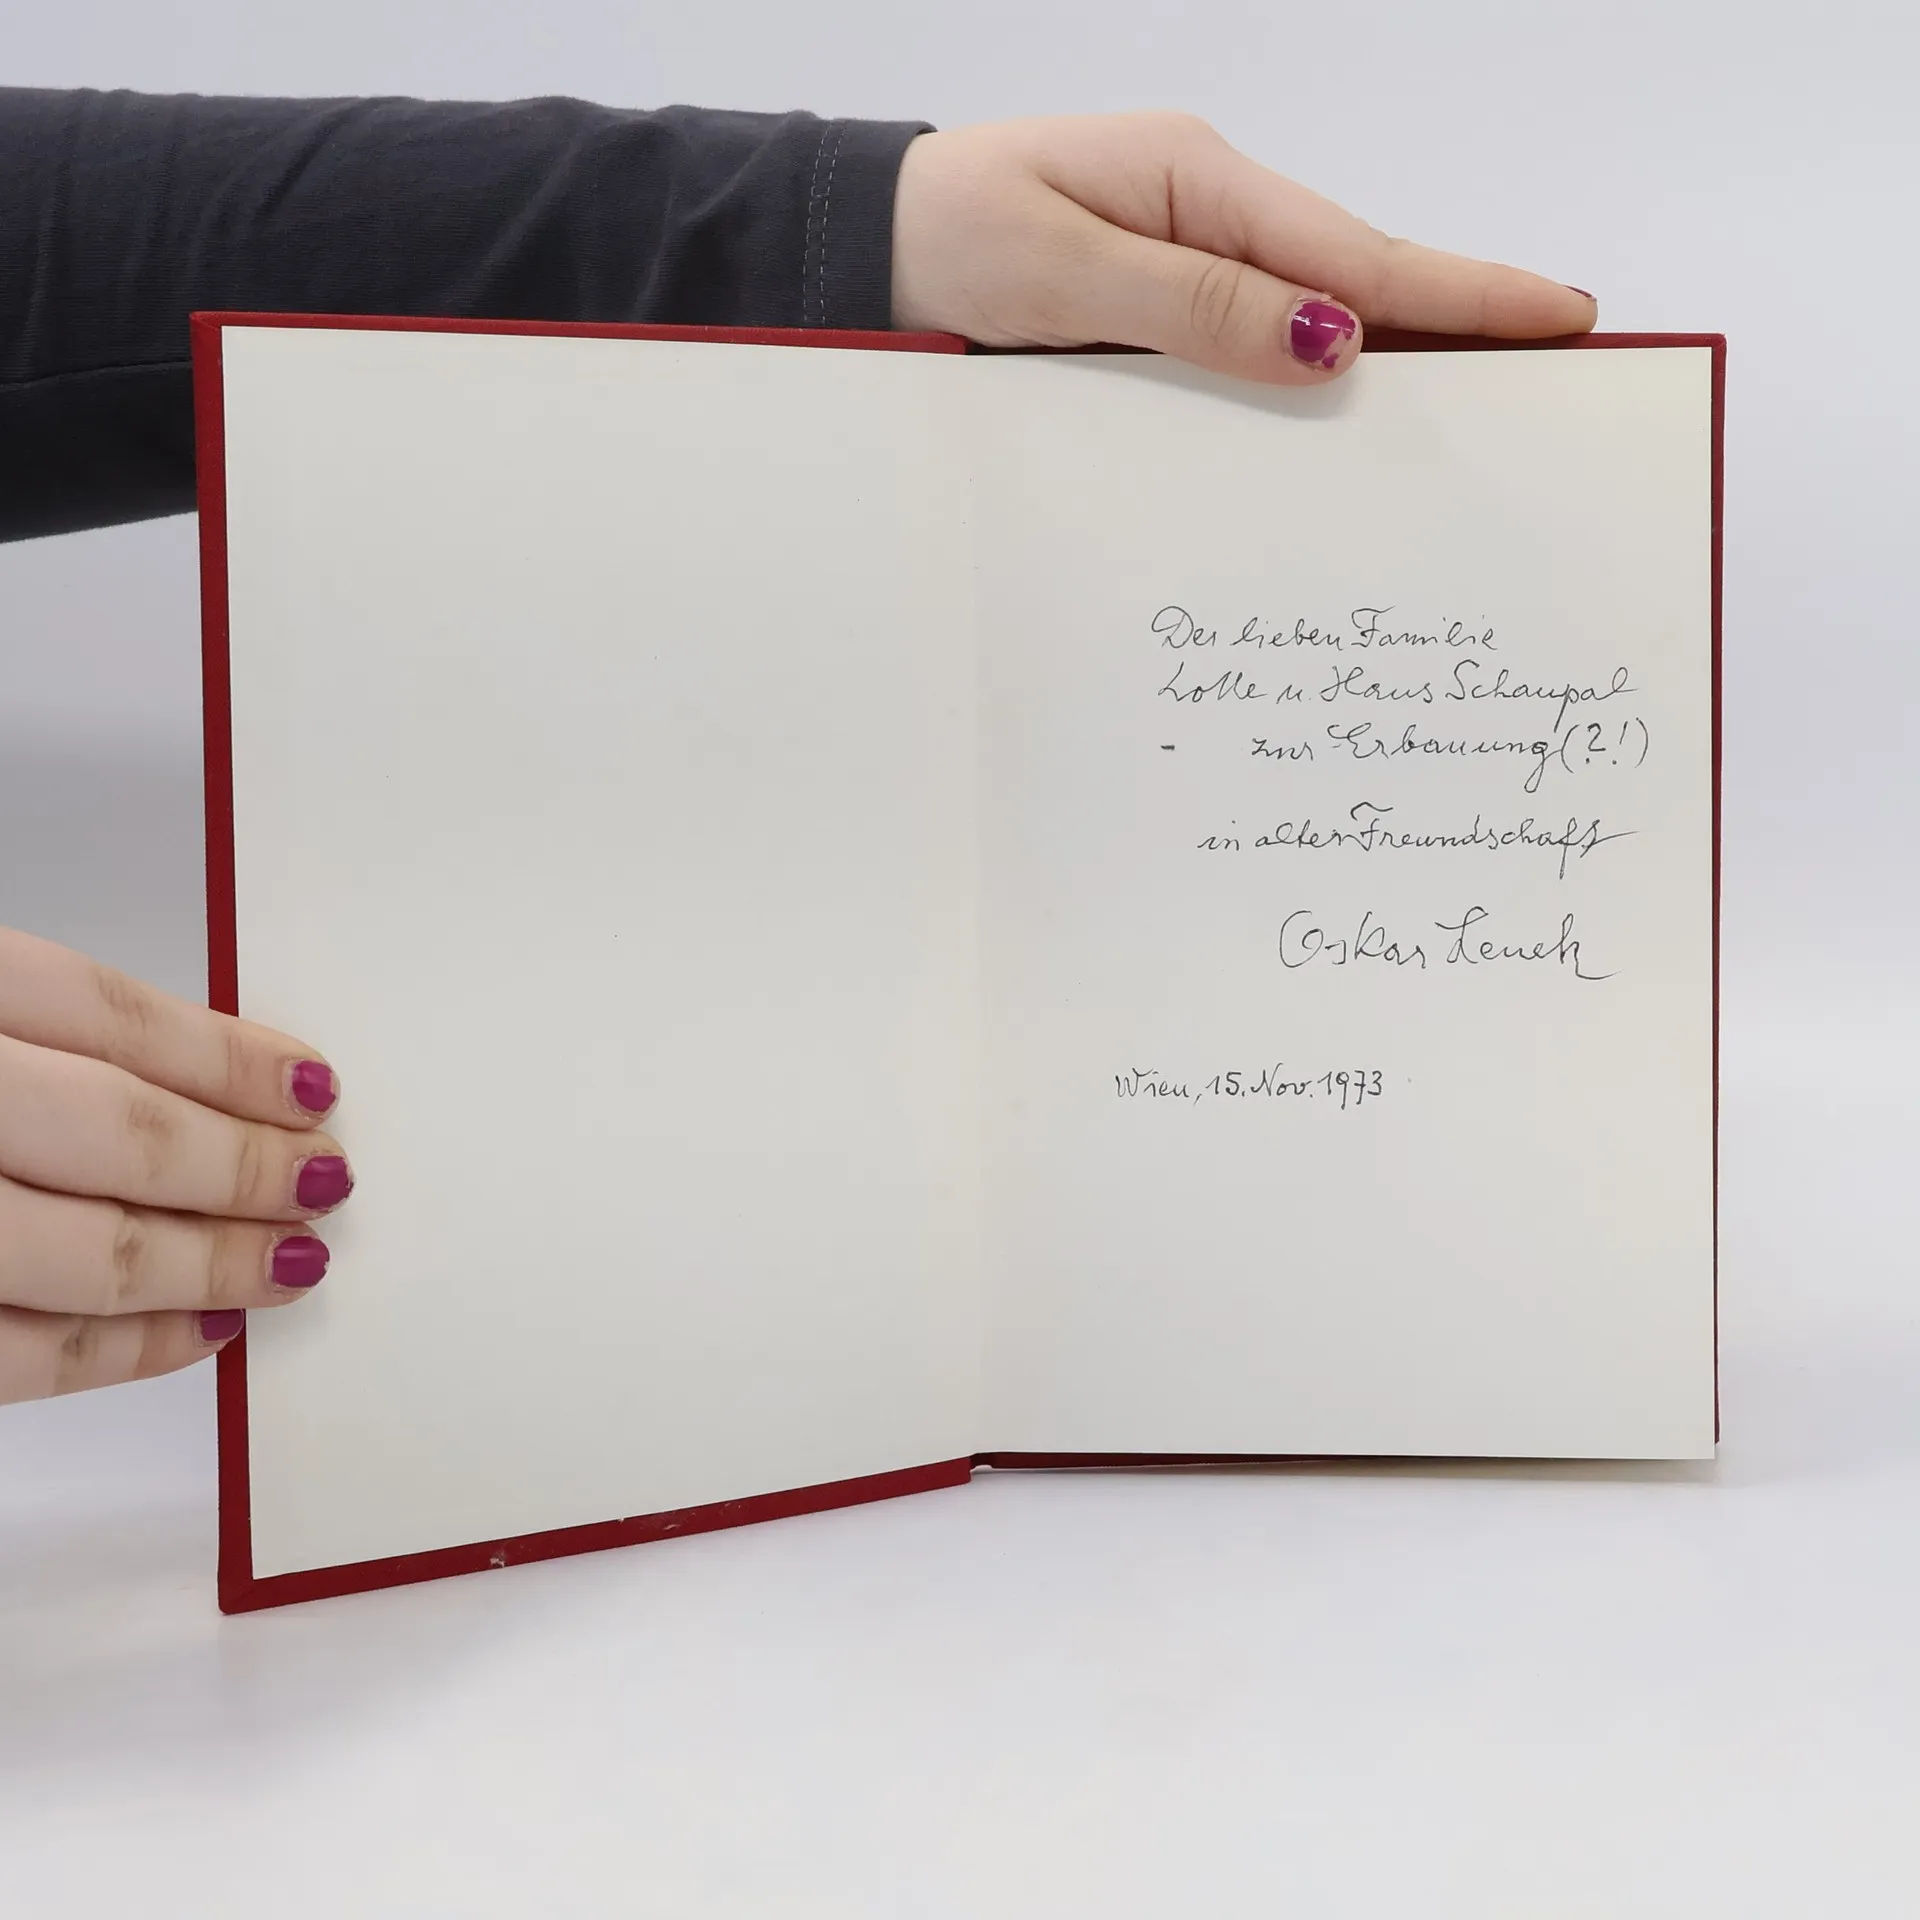 Der lieben Familie
Lotte u. Hans Schaupal
- zur Erbauung (?!)
in alter Freundschaft
Oskar
Wien, 15. Nov. 1973